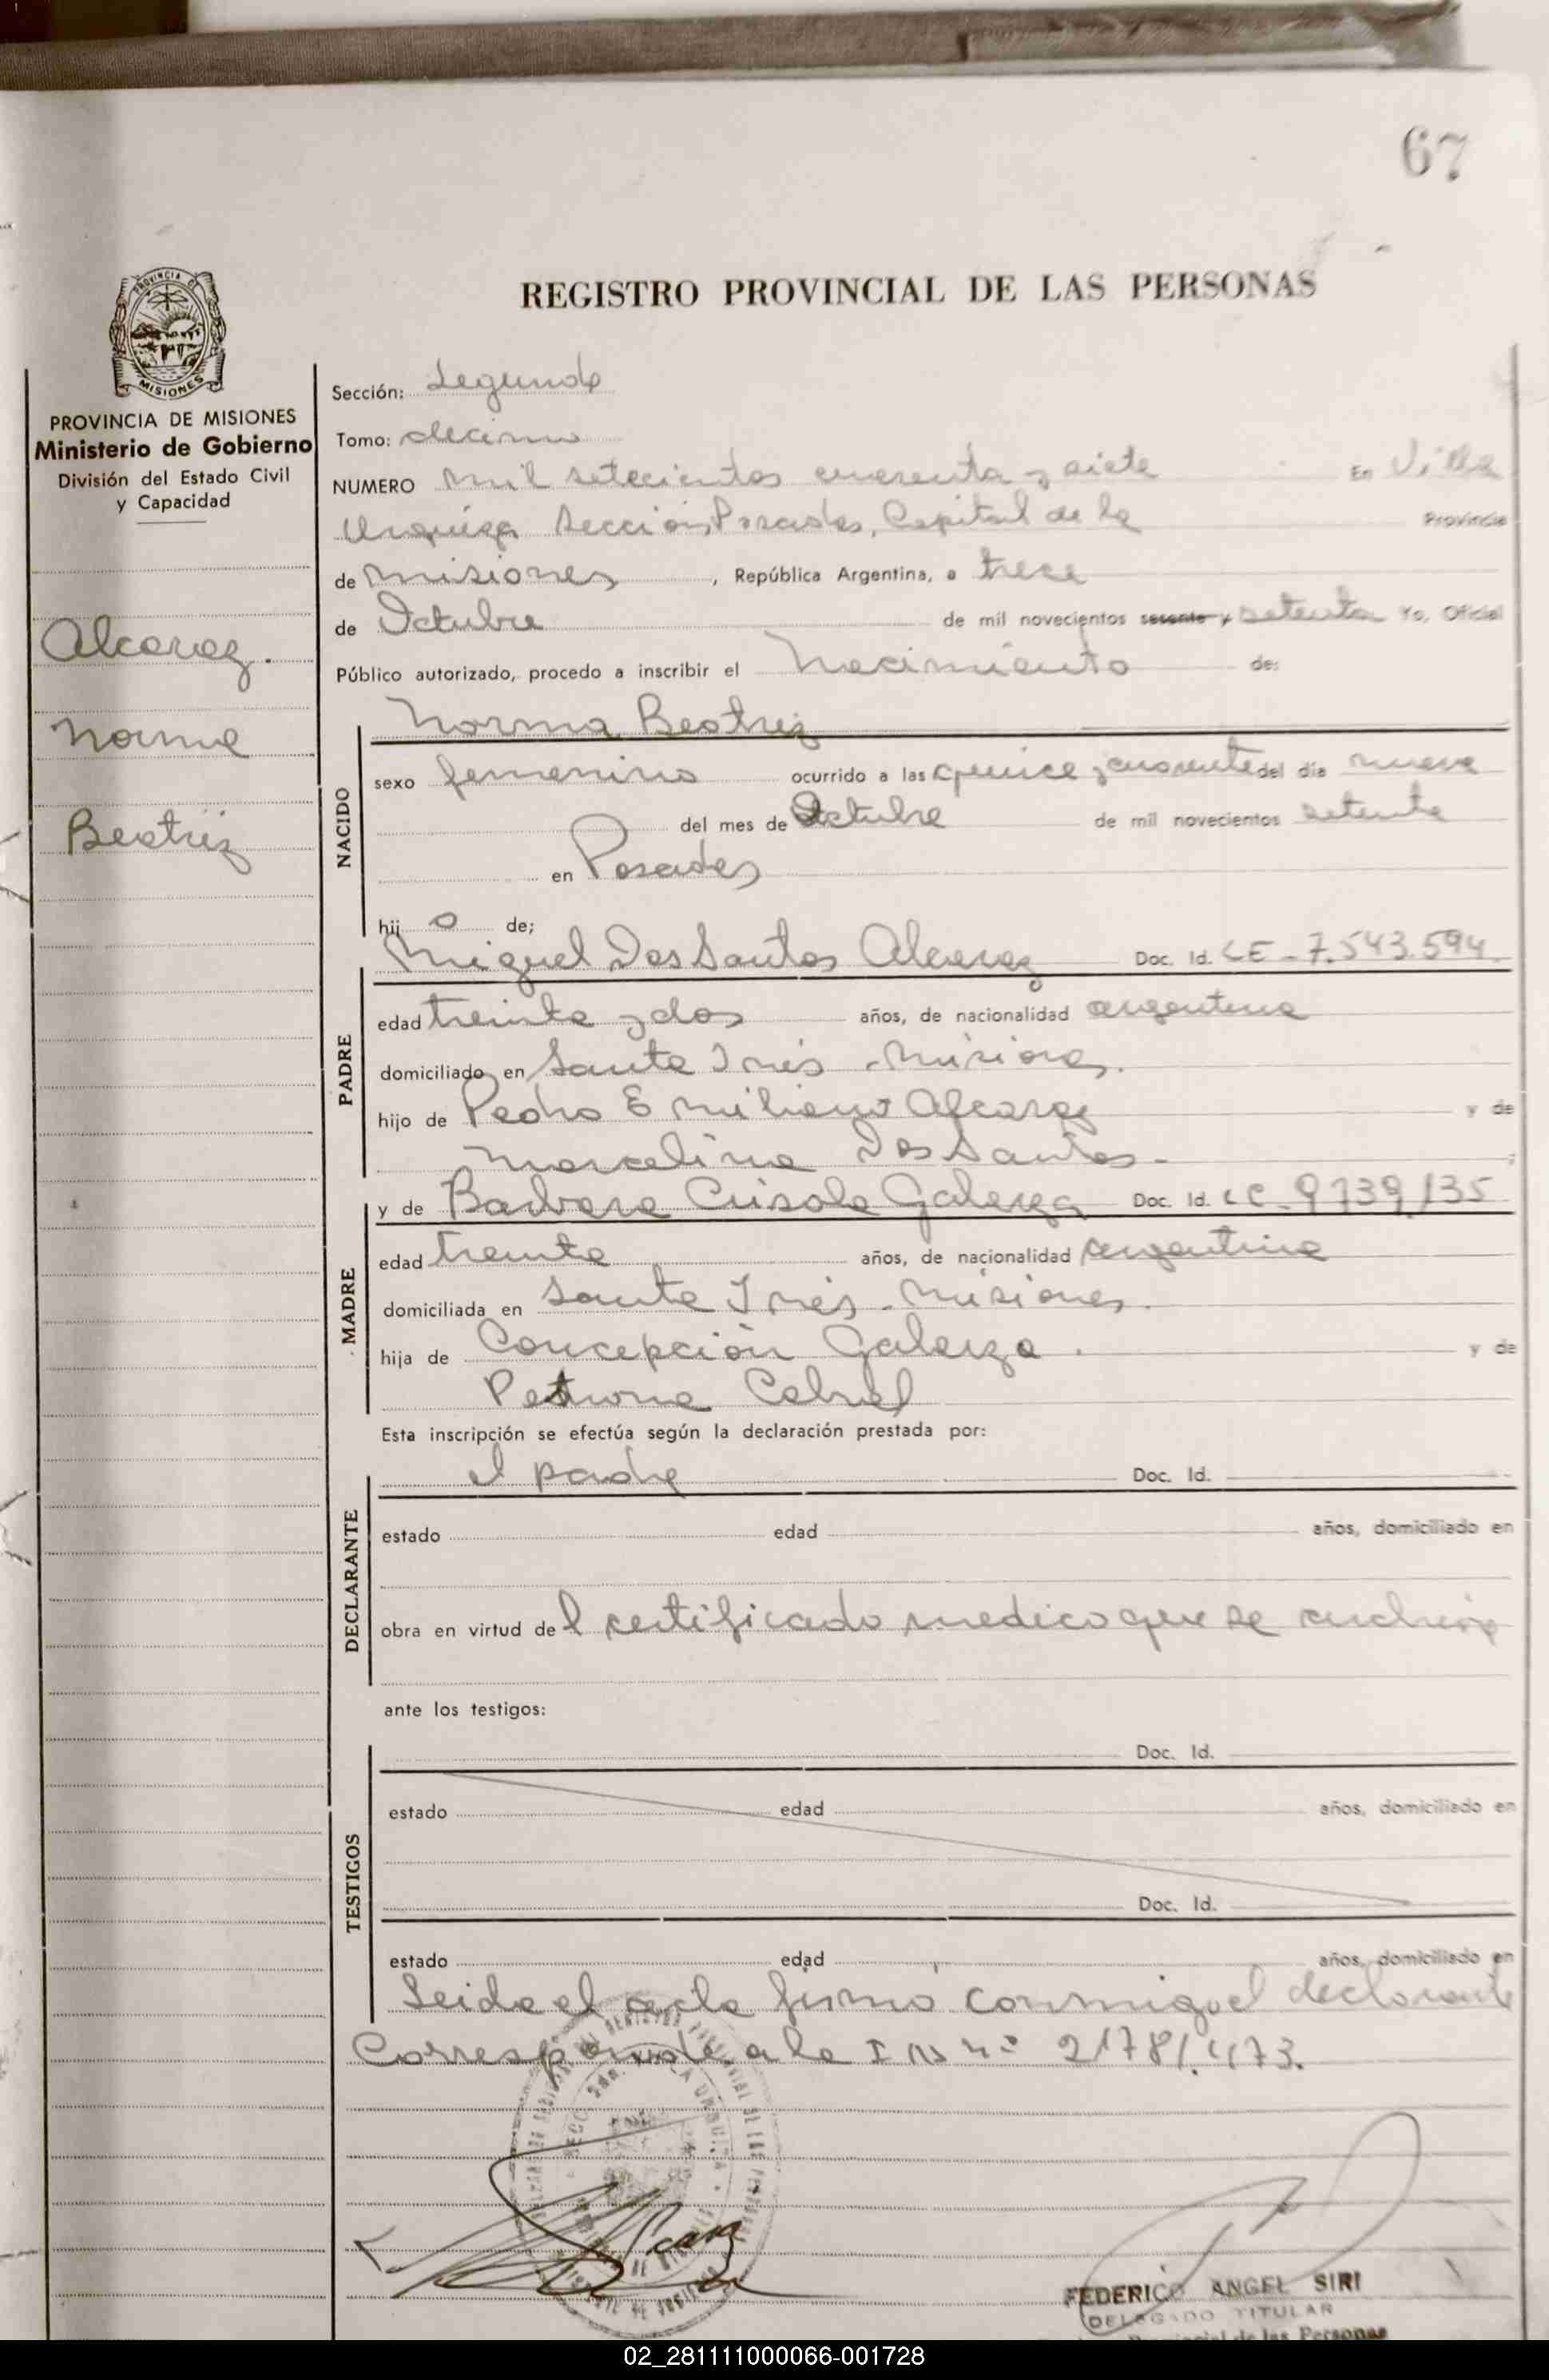 67
REGISTRO PROVINCIAL DE LAS PERSONAS
PROVINCIA DE MISIONES
MISIONES
PROVINCIA DE MISIONES
Ministerio de Gobierno
División del Estado Civil
y Capacidad
Alcaraz.
Norma
Beatriz
Sección: Segunda
Tomo: decimo
NUMERO mil setecientos cuarenta y siete En Villa
Urquiza Seccion Posadas, Capital de la Provincia
de Misiones, República Argentina, a trece
de Octubre de mil novecientos sesenta y setenta Yo, Oficial
Público autorizado, procedo a inscribir el Nacimiento de:
Norma Beatriz
NACIDO
sexo femenino ocurrido a las quince y cuarenta del día nueve
del mes de Octubre de mil novecientos setenta
en Posadas
hij a de;
Miguel Dos Santos Alcaraz Doc. Id. LE - 7.543.594
PADRE
edad treinta y dos años, de nacionalidad argentina
domiciliado en Santa Inés - Misiones.
hijo de Pedro Emiliano Alcaraz y de
Marcelina Dos Santos -
y de Barbara Crisola Galarza Doc. Id. LC - 9739135
MADRE
edad treinta años, de nacionalidad argentina
domiciliada en Santa Inés - Misiones.
hija de Concepción Galarza. y de
Petrona Cabral
Esta inscripción se efectúa según la declaración prestada por:
el padre Doc. Id.
DECLARANTE
estado edad años, domiciliado en
obra en virtud del certificado medico que se archiva
ante los testigos:
TESTIGOS
Doc. Id.
estado edad años, domiciliado en
Doc. Id.
estado edad años, domiciliado en
Leida el acta firmó conmigo el declarante
Corresponde a la
FEDERICO ANGEL SIRI
DELEGADO TITULAR
Provincial de las Personas
02_281111000066-001728